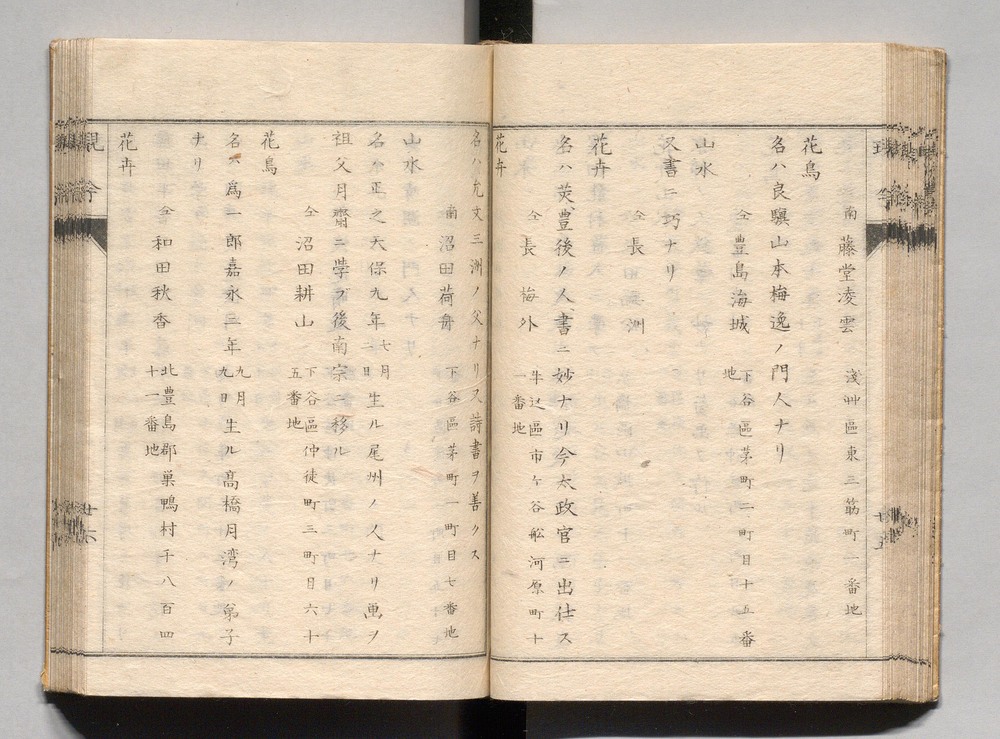 南 藤堂凌雲 淺艸區東三筋町一番地
花鳥
名ハ良驥山本梅逸ノ門人ナリ
仝 豊島海城 下谷區茅町二町目十五番地
山水
又書ニ巧ナリ
仝 長 洲
花卉
名ハ炗豊後ノ人書ニ妙ナリ今太政官ニ出仕ス
仝 長 梅外 牛込區市ケ谷船河原町十一番地
花卉
名ハ允文三洲ノ父ナリ又詩書ヲ善クス
南 沼田荷舟 下谷區茅町一町目七番地
山水
名ハ正之天保九年七月二日生ル尾州ノ人ナリ画ヲ
祖父月齋ニ學ブ後南宗ニ移ル
仝 沼田耕山 下谷區仲徒町三町目六十五番地
花鳥
名ハ爲一郎嘉永三年九月九日生ル高橋月湾ノ弟子
ナリ
仝 和田秋香 北豊島郡巣鴨村千八百四十一番地
花卉
廿五
廿六